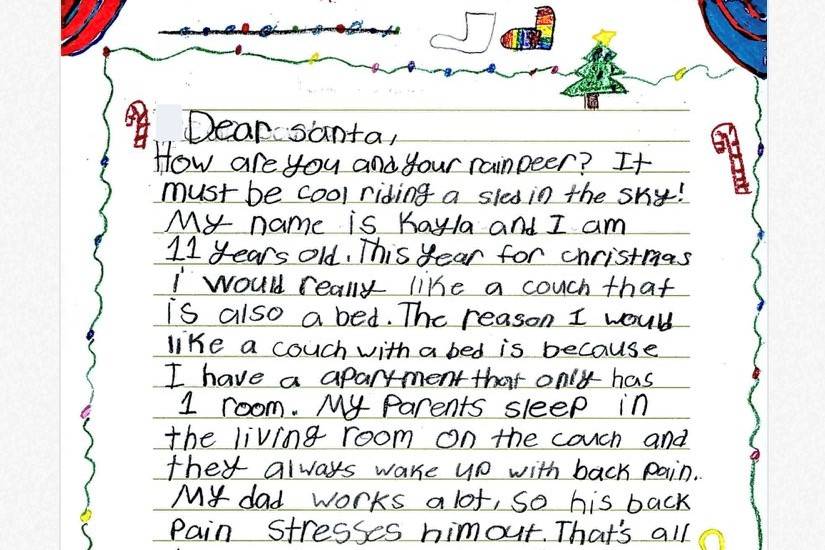 Dear santa,
How are you and your rainDeer? It
must be cool riding a sled in the sky!
My name is Kayla and I am
11 years old. This year for christmas
i would really like a couch that
is also a bed. The reason I would
like a couch with a bed is because
I have a apartment that only has
1 room. My Parents sleep in
the living room on the couch and
they always wake up with back pain.
My dad works a lot, so his back
Pain stresses him out. That's all